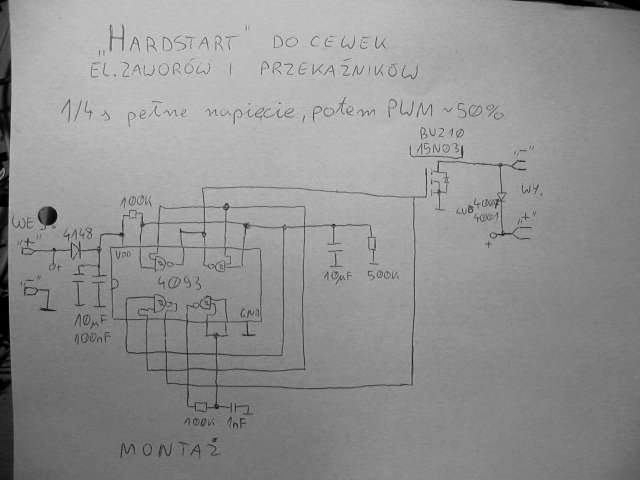 „HARDSTART” DO CEWEK
EL. ZAWORÓW I PRZEKAŹNIKÓW
1/4 s pełne napięcie, potem PWM ~50%
BUZ10
15N03
100K
WE
"+"
4148
+
"-"
VDD
4093
GND
10µF
100nF
10µF
500K
"-"
WY.
LUB 4007
4001
"+"
+
100K
1nF
MONTAŻ